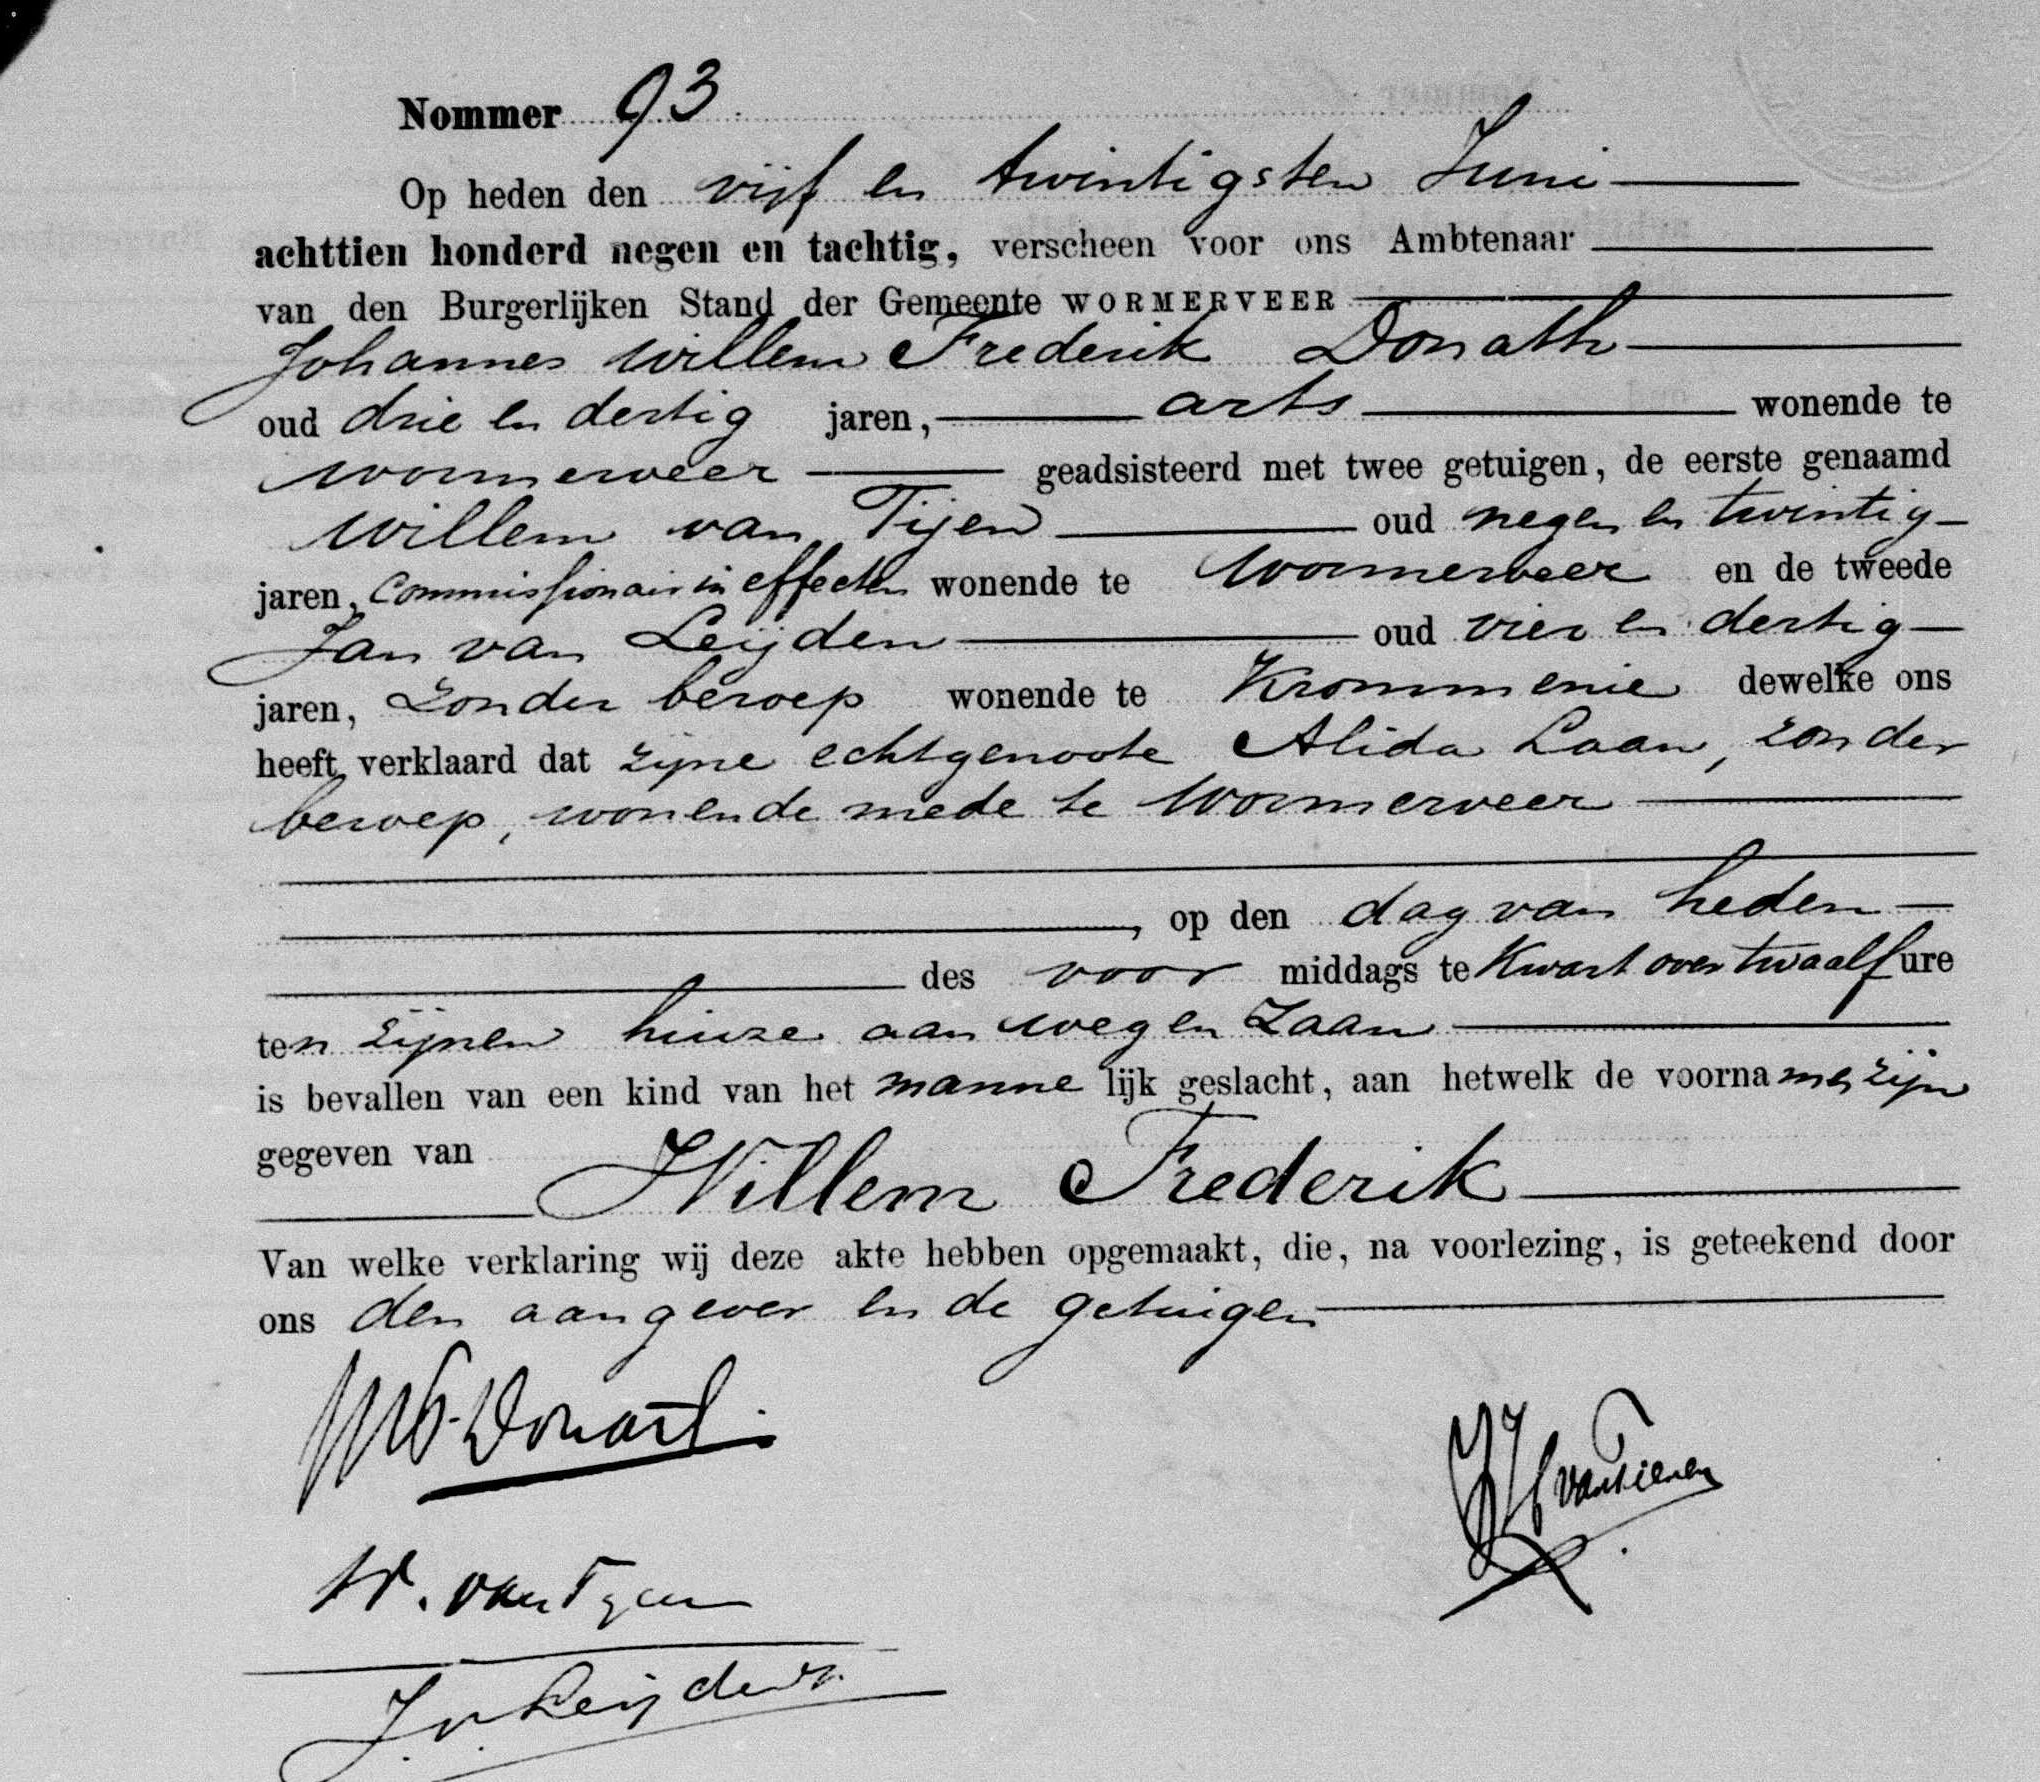 Nommer 93
Op heden den vijf en twintigsten Juni
achttien honderd negen en tachtig, verscheen voor ons Ambtenaar
van den Burgerlijken Stand der Gemeente WORMERVEER
Johannes Willem Frederik Donath
oud drie en dertig jaren, arts wonende te
Wormerveer geadsisteerd met twee getuigen, de eerste genaamd
Willem van Tijen oud negen en twintig
jaren, Commissionair in effecten wonende te Wormerveer en de tweede
Jan van Leijden oud vier en dertig
jaren, zonder beroep wonende te Krommenie dewelke ons
heeft verklaard dat zijne echtgenoote Alida Laan, zonder
beroep, wonende mede te Wormerveer
, op den dag van heden
des voor middags te Kwart over twaalf ure
ten zijnen huize aan weg en Zaan
is bevallen van een kind van het manne lijk geslacht, aan hetwelk de voornamen zijn
gegeven van
Willem Frederik
Van welke verklaring wij deze akte hebben opgemaakt, die, na voorlezing, is geteekend door
ons den aangever en de getuigen
Donath
van Tienen
W. van Tyen
J. v. Leijden